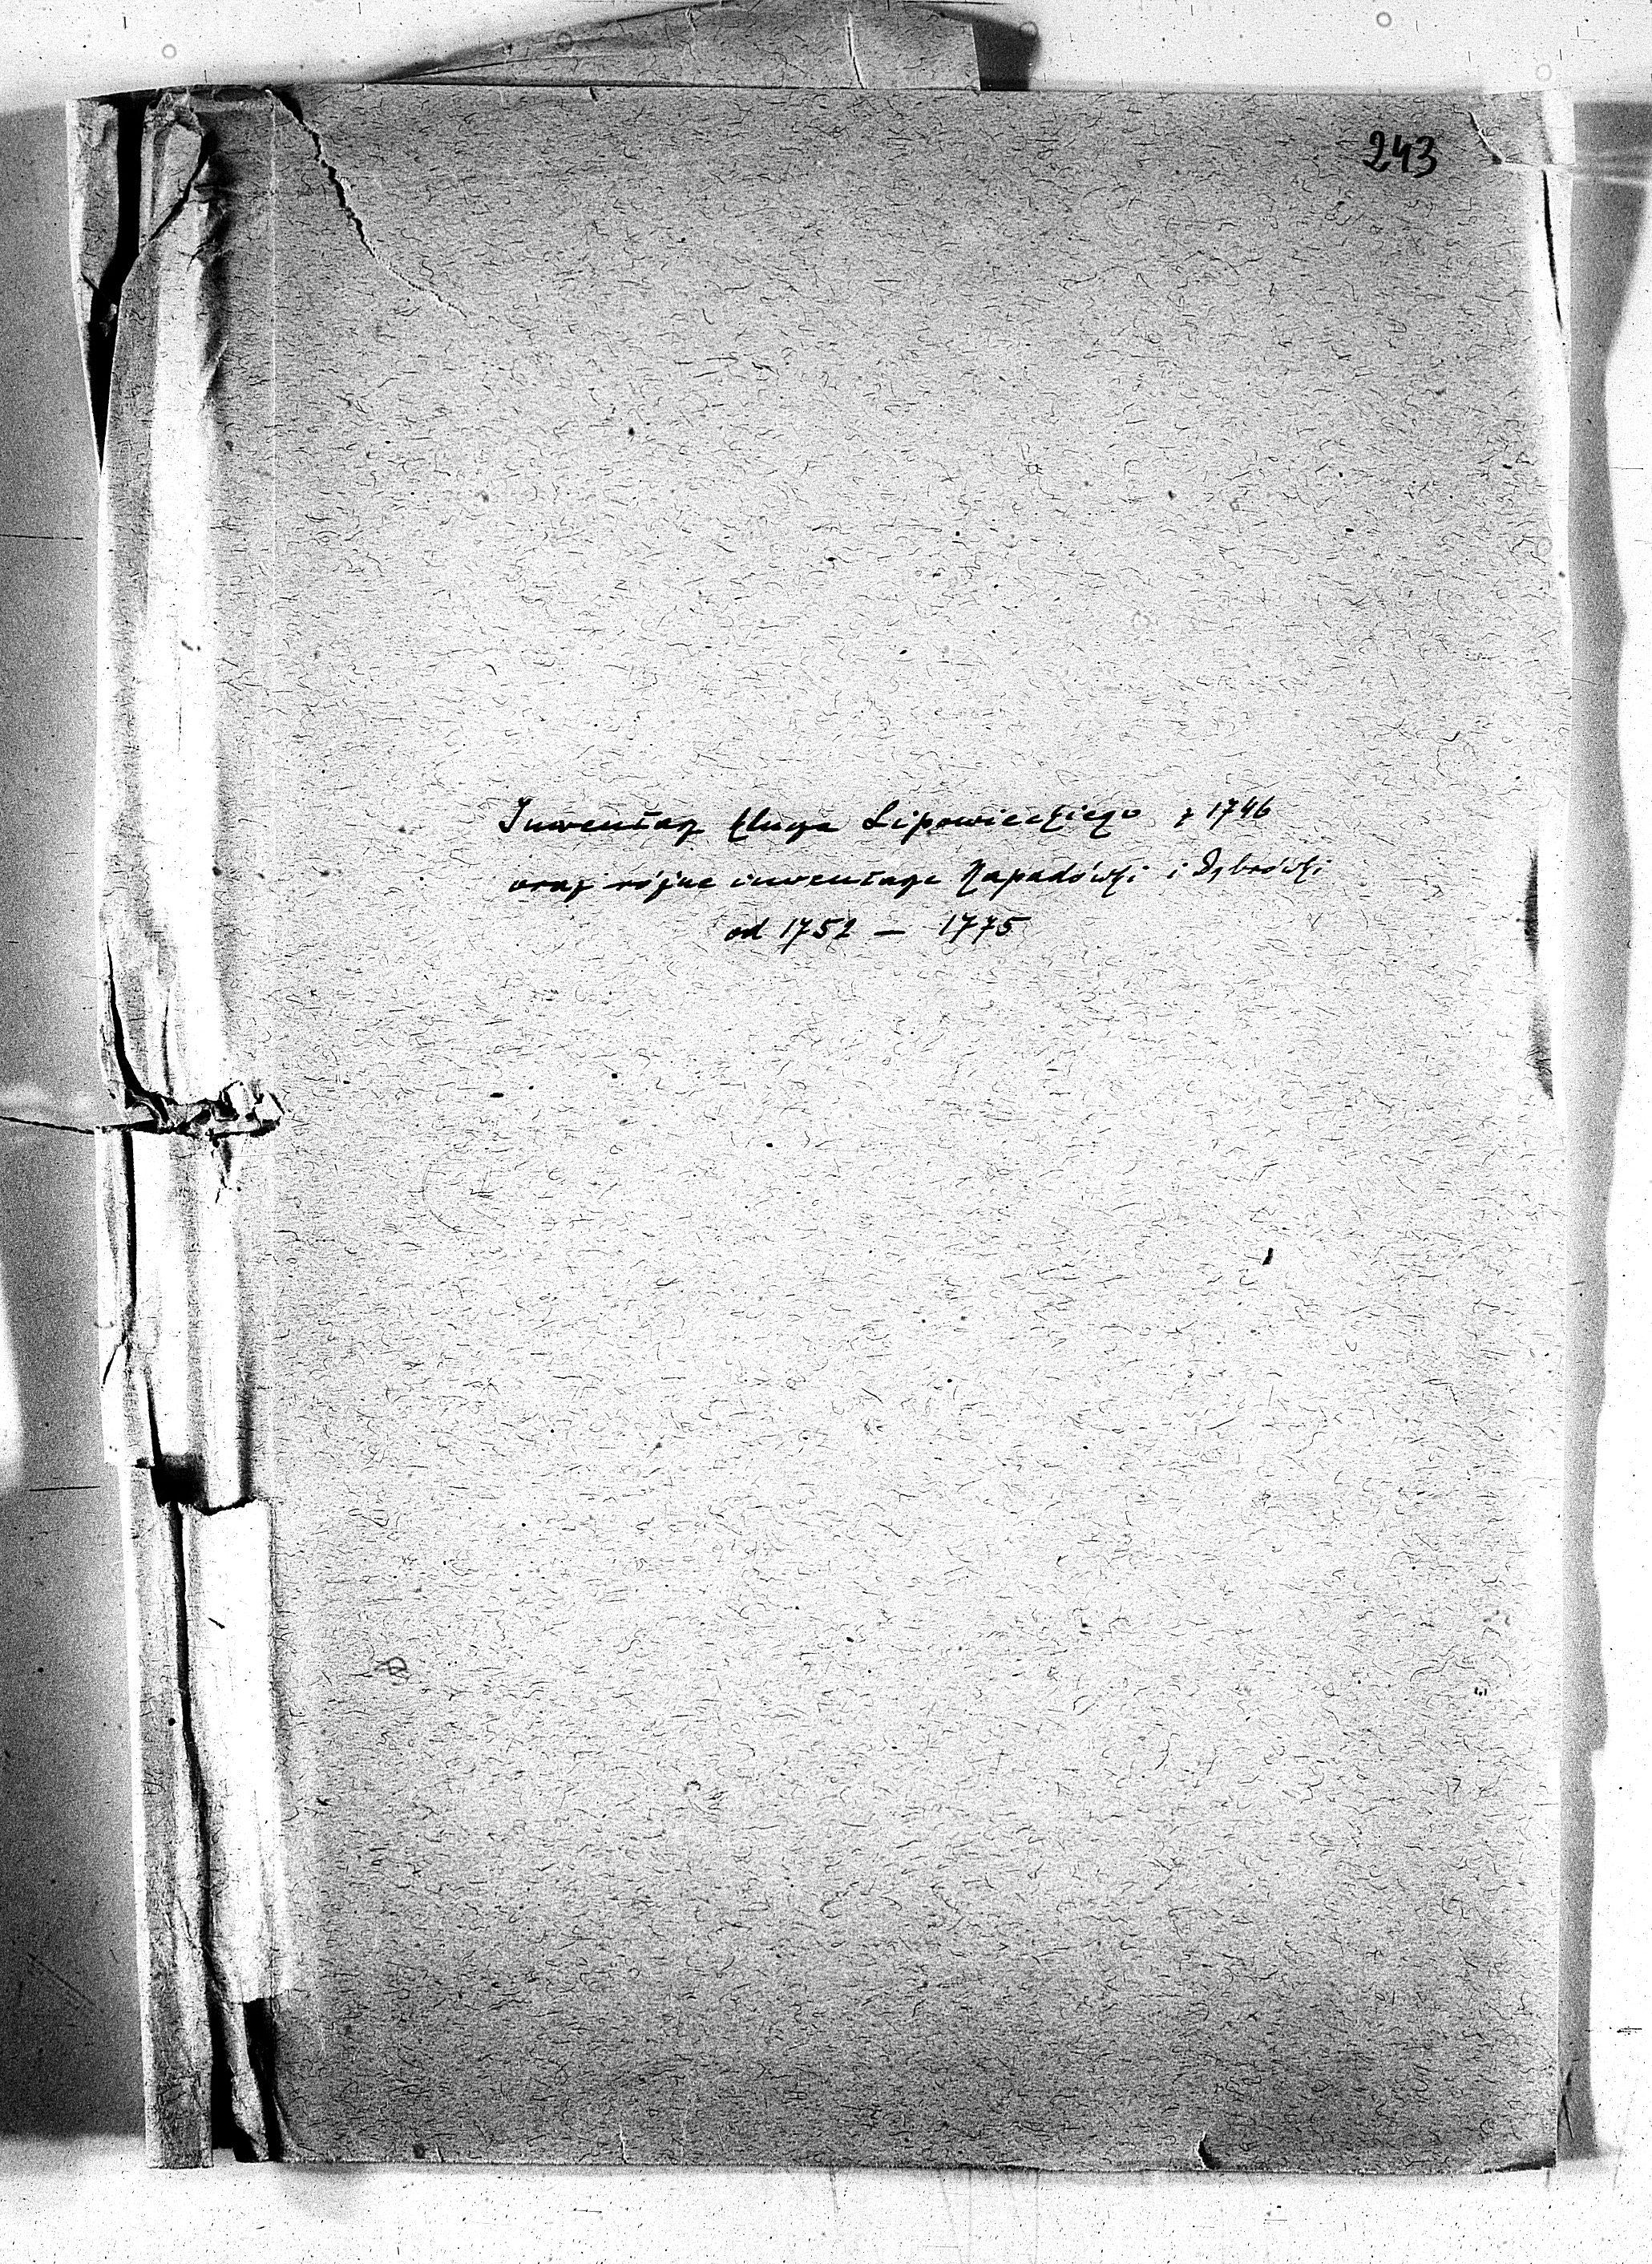 243
Inwentarz klucza Lipowieckiego z 1746
oraz różne inwentarze Napadówki i Dąbrówki
od 1752 — 1775